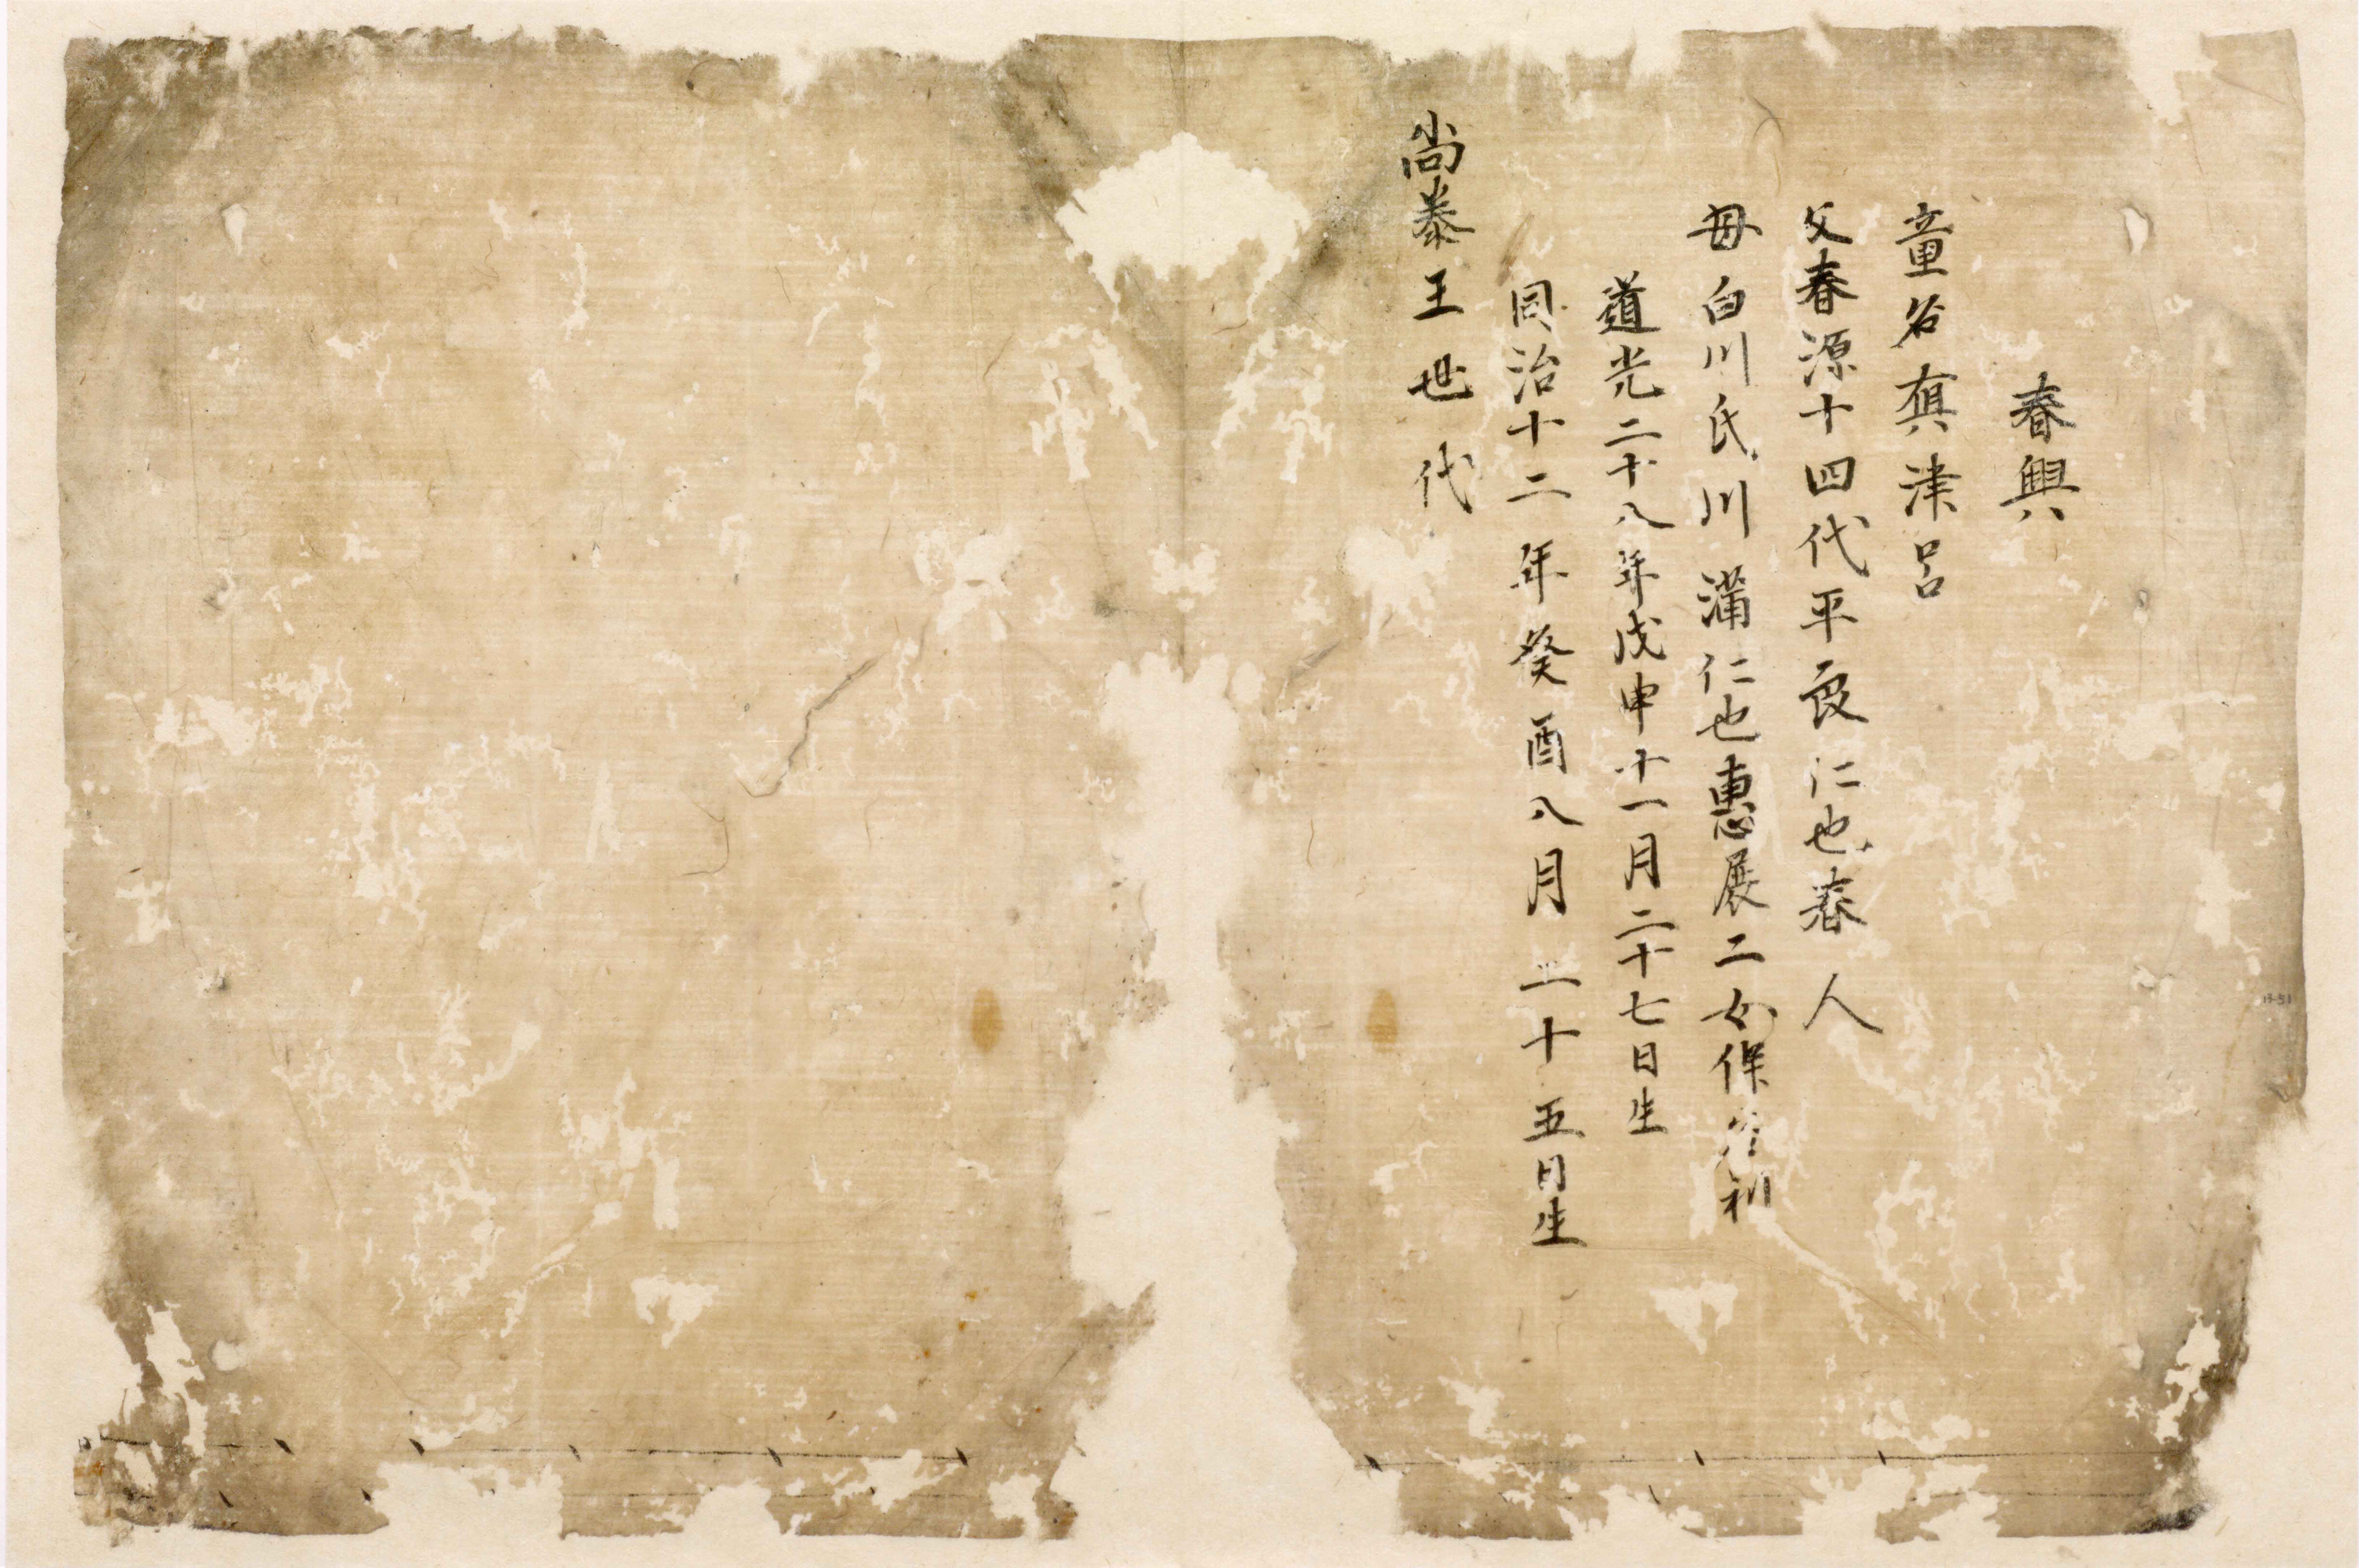 春興
童名真津呂
父春源十四代平良仁也春人
母白川氏川満仁也恵展二女保 利
道光二十八年戊申十一月二十七日生
同治十二年癸酉八月二十五日生
尚泰王世代
13-51